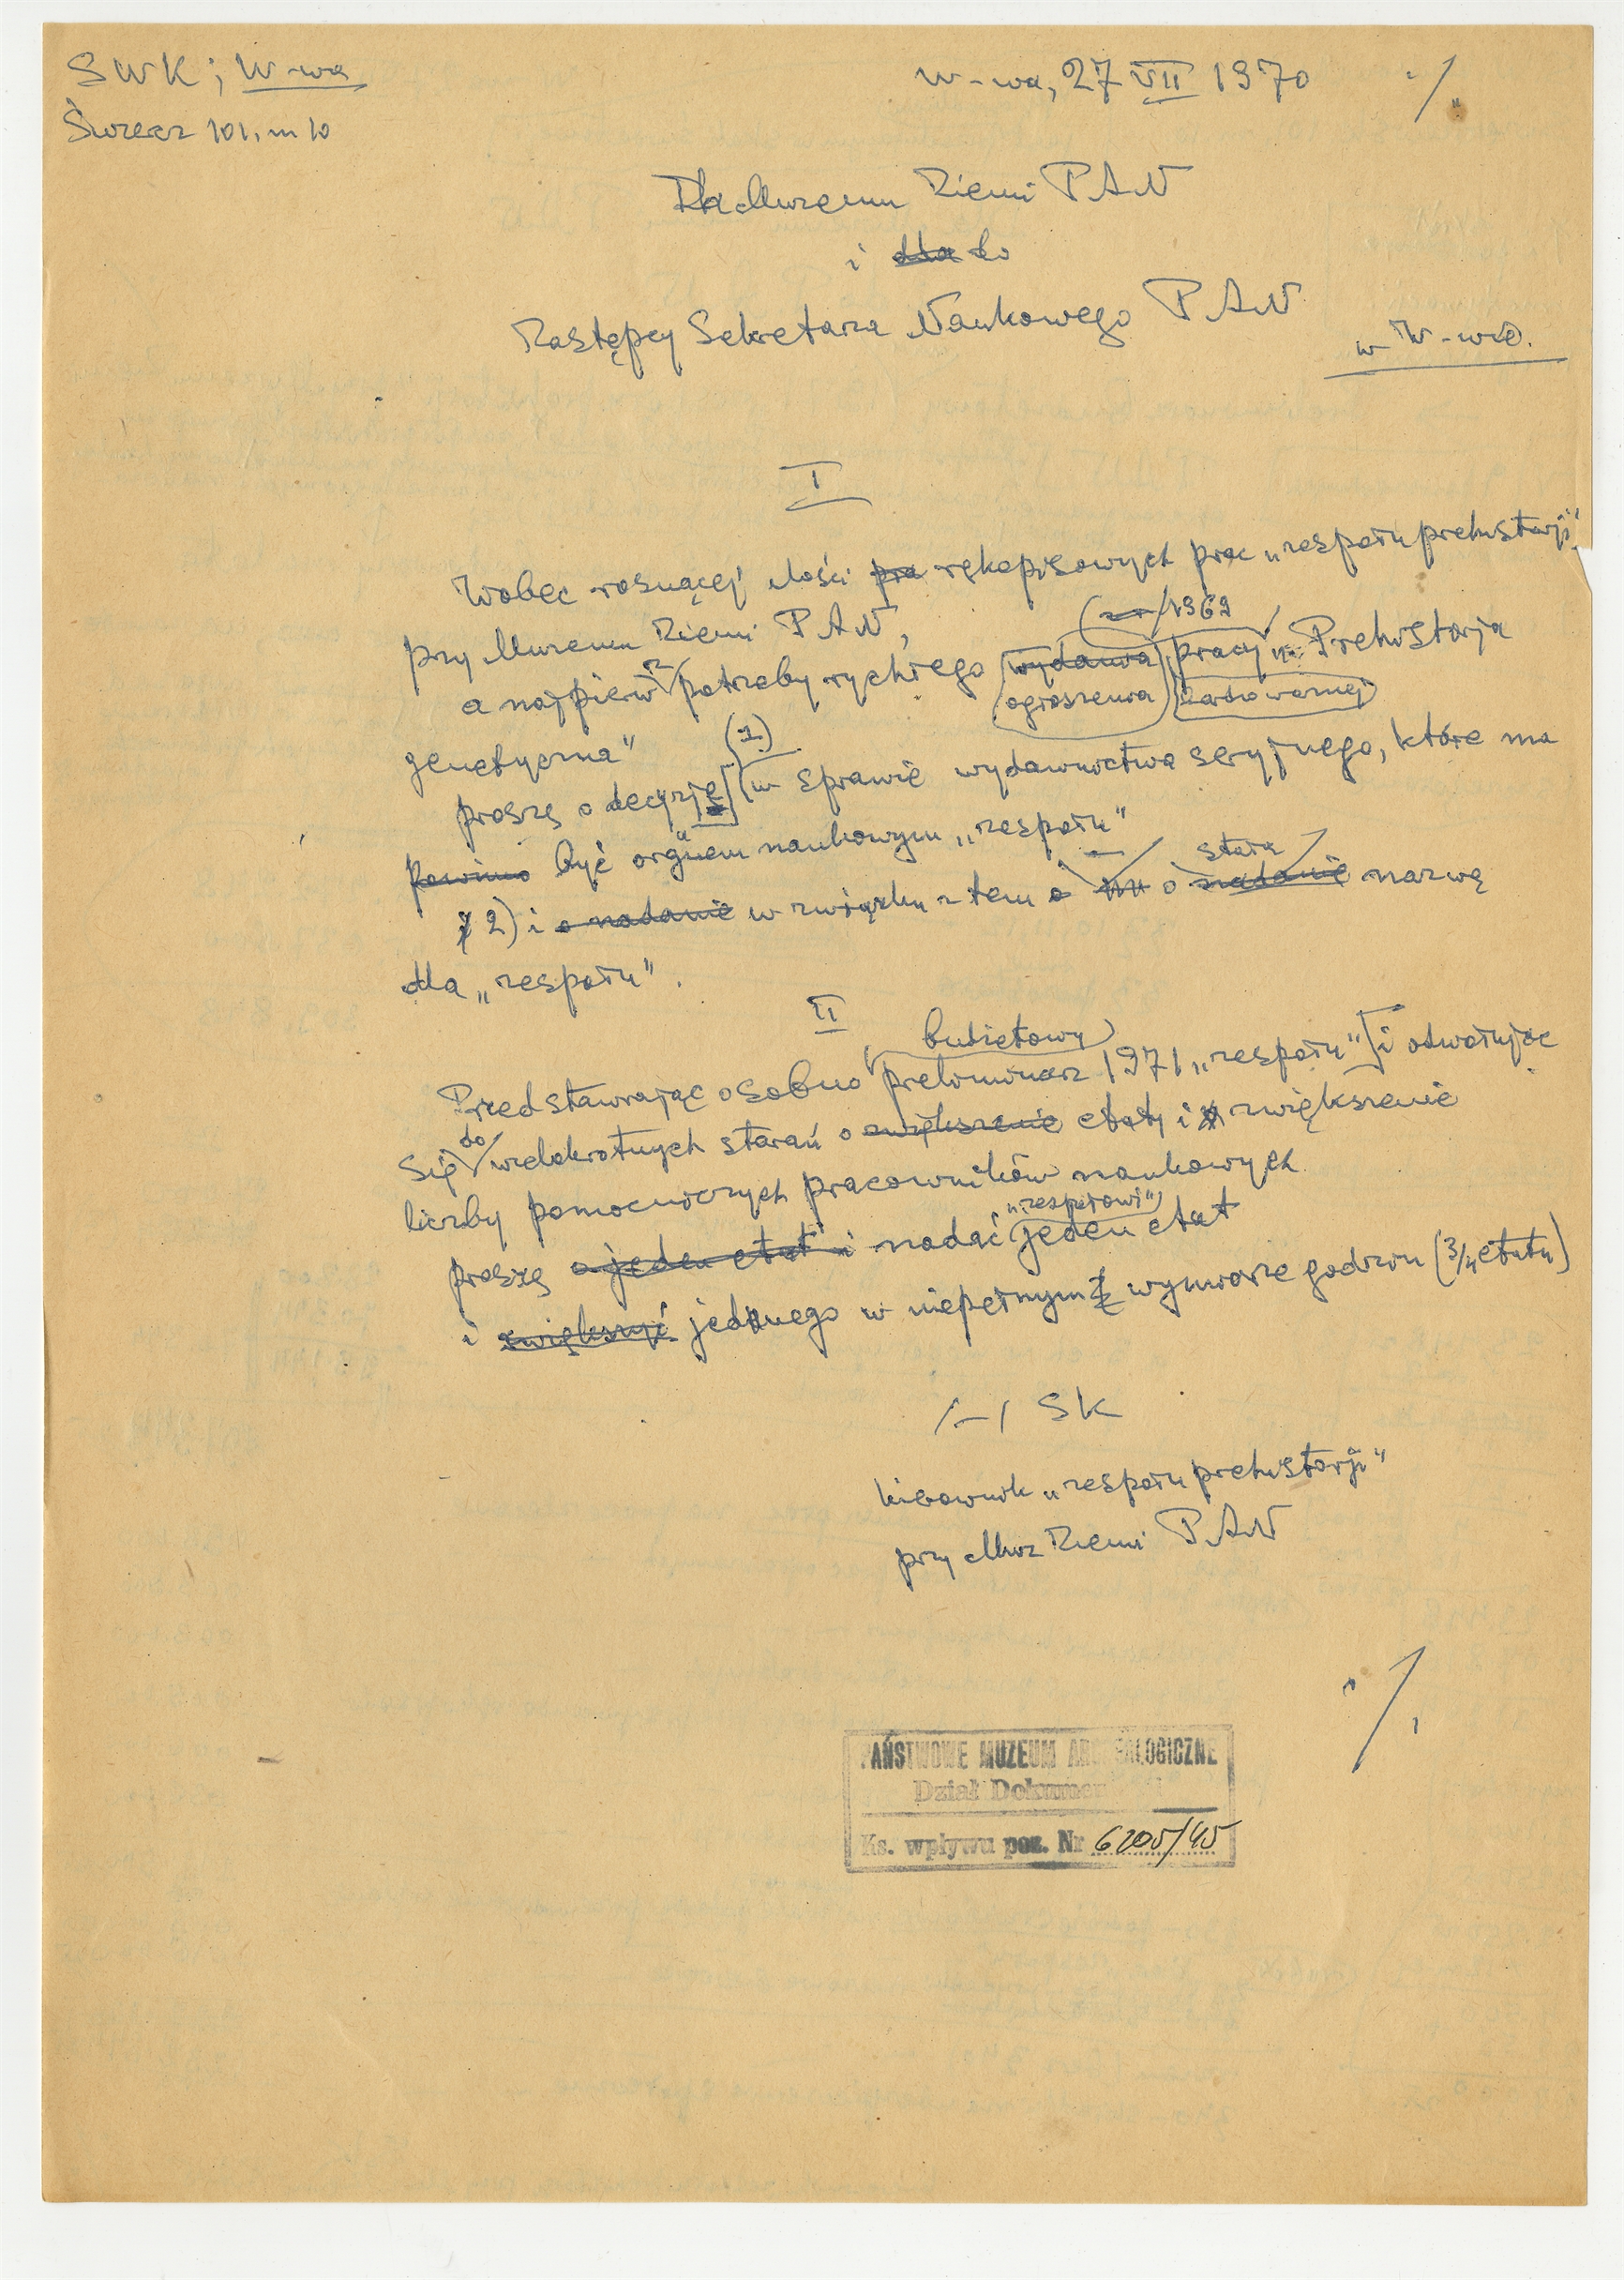 SWK; W-wa
W-wa, 27 VII 1970
Świercz 101, m 10
Dla Muzeum Ziemi PAN
i dla do
Zastępcy Sekretarza Naukowego PAN
w W-wie.
I
Wobec rosnącej ilości pra rękopisowych prac „zespołu prehistorji”
przy Muzeum Ziemi PAN,
1969
a najpierw z potrzeby rychłego wydawa pracy Prehistorja
ogłoszenia
genetyczna”
(1)
proszę o decyzję w sprawie wydawnictwa seryjnego, które ma
powinno być orgnem naukowym „zespołu”
a
stałą
2) i o nadanie w związku z tem o o nadanie nazwę
dla „zespołu”.
II
budżetowy
Przedstawiając osobno preliminarz 1971 „zespołu” i odwołując
się do wielokrotnych starań o zwiększenie etaty i zwiększenie
liczby pomocniczych pracowników naukowych
„zespołowi”
proszę o jeden etat i nadać jeden etat
i zwiększyć jednego w niepełnym wymiarze godzin (3/4 etatu)
/-/ SK
kierownik „zespołu prehistorji”
przy Muz Ziemi PAN
PAŃSTWOWE MUZEUM ARCHEOLOGICZNE
Dział Dokumentacji
Ks. wpływu poz. Nr 6205/45